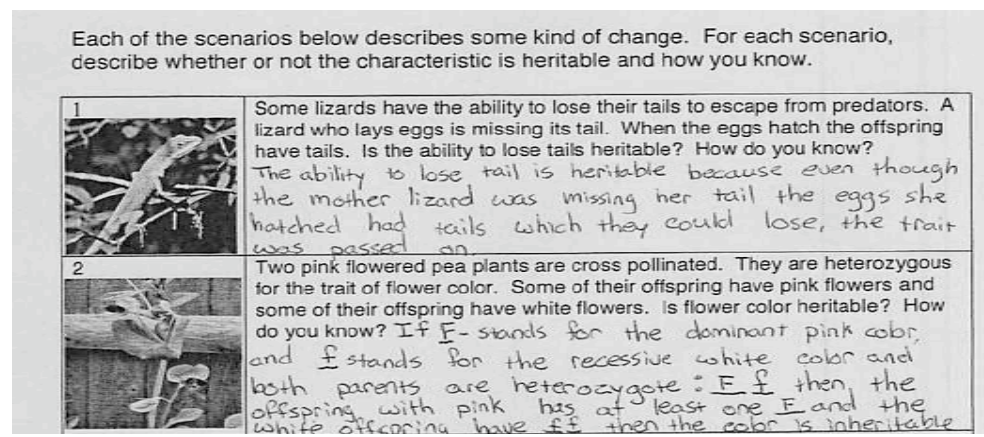 Each of the scenarios below describes some kind of change. For each scenario,
describe whether or not the characteristic is heritable and how you know.
1
Some lizards have the ability to lose their tails to escape from predators. A
lizard who lays eggs is missing its tail. When the eggs hatch the offspring
have tails. Is the ability to lose tails heritable? How do you know?
The ability to lose tail is heritable because even though
the mother lizard was missing her tail the eggs she
hatched had tails which they could lose, the trait
was passed on
2
Two pink flowered pea plants are cross pollinated. They are heterozygous
for the trait of flower color. Some of their offspring have pink flowers and
some of their offspring have white flowers. Is flower color heritable? How
do you know? If F- stands for the dominant pink color,
and f stands for the recessive white color and
both parents are heterozygote: F f then, the
offspring with pink has at least one F and the
white offspring have ff then the color is inheritable